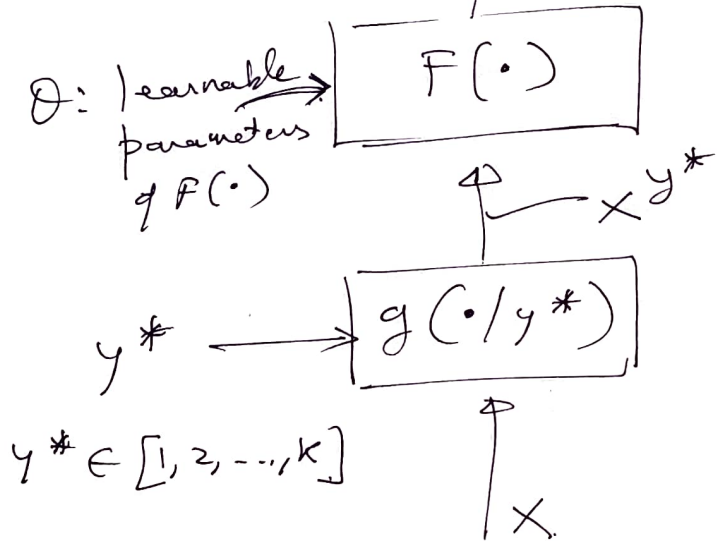 F(·)
θ: learnable
parameters
of F(·)
x y*
y*
g(·/y*)
y* ∈ [1, 2, ---, K]
X